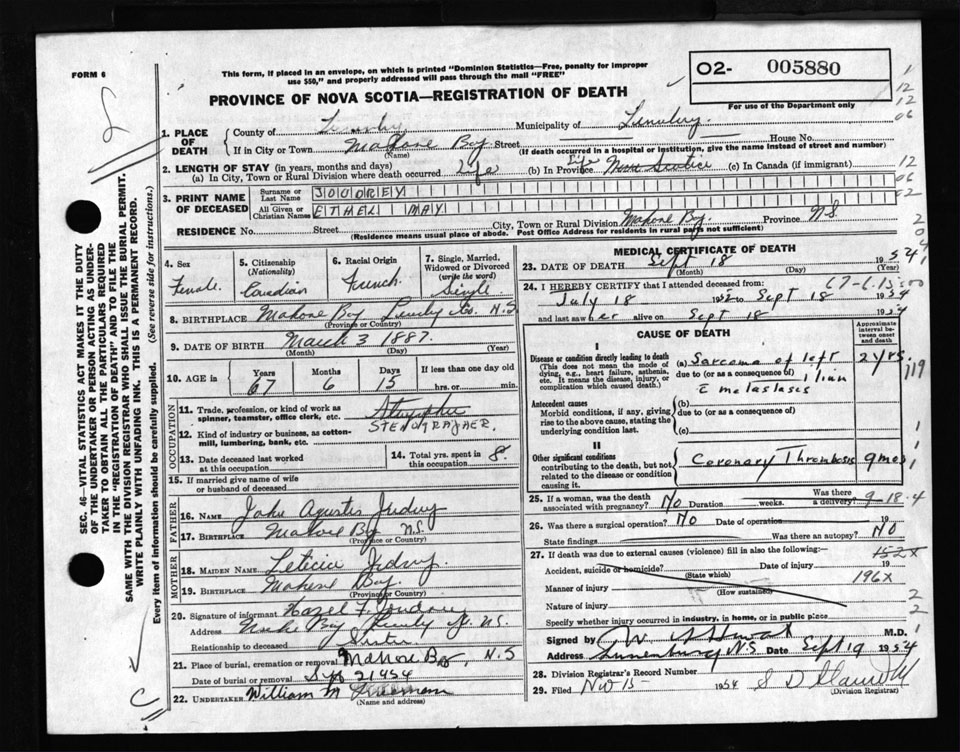 FORM 6
This form, if placed in an envelope, on which is printed "Dominion Statistics—Free, penalty for improper
use $50," and properly addressed will pass through the mail "FREE"
O2- 005880
For use of the Department only
PROVINCE OF NOVA SCOTIA—REGISTRATION OF DEATH
SEC. 46—VITAL STATISTICS ACT MAKES IT THE DUTY
OF THE UNDERTAKER OR PERSON ACTING AS UNDER-
TAKER TO OBTAIN ALL THE PARTICULARS REQUIRED
IN THE "REGISTRATION OF DEATH" AND TO FILE THE
SAME WITH THE DIVISION REGISTRAR WHO SHALL ISSUE THE BURIAL PERMIT.
WRITE PLAINLY WITH UNFADING INK. THIS IS A PERMANENT RECORD.
Every item of information should be carefully supplied. (See reverse side for instructions.)
1. PLACE OF DEATH
County of Municipality of
If in City or Town Mahone Bay Street House No.
(Name) (If death occurred in a hospital or institution, give the name instead of street and number)
2. LENGTH OF STAY (in years, months and days)
(a) In City, Town or Rural Division where death occurred Life (b) In Province Life Nova Scotia (c) In Canada (if immigrant)
3. PRINT NAME OF DECEASED
Surname or Last Name JOUDREY
All Given or Christian Names ETHEL MAY
RESIDENCE No. Street City, Town or Rural Division Mahone Bay Province N.S.
(Residence means usual place of abode. Post Office Address for residents in rural parts not sufficient)
4. Sex Female
5. Citizenship (Nationality) Canadian
6. Racial Origin French
7. Single, Married, Widowed or Divorced (write the word) Single
8. BIRTHPLACE Mahone Bay Co. N.S.
(Province or Country)
9. DATE OF BIRTH March 3 1887.
(Month) (Day) (Year)
10. AGE in Years 67 Months 6 Days 15 If less than one day old hrs. or min.
OCCUPATION
11. Trade, profession, or kind of work as spinner, teamster, office clerk, etc.
STENOGRAPHER.
12. Kind of industry or business, as cotton-mill, lumbering, bank, etc.
13. Date deceased last worked at this occupation
14. Total yrs. spent in this occupation 8.
15. If married give name of wife or husband of deceased
FATHER
16. Name John
17. Birthplace Mahone Bay N.S.
(Province or Country)
MOTHER
18. MAIDEN NAME Leticia
19. BIRTHPLACE Mahone Bay.
(Province or Country)
20. Signature of informant Hazel F. Joudrey
Address Mahone Bay N.S.
Relationship to deceased Sister
21. Place of burial, cremation or removal Mahone Bay, N.S
Date of burial or removal Sept 21 1954
22. UNDERTAKER William M
(Name and address)
MEDICAL CERTIFICATE OF DEATH
23. DATE OF DEATH Sept 18 1954
(Month) (Day) (Year)
24. I HEREBY CERTIFY that I attended deceased from:
July 18 1952 to Sept 18 1954
and last saw her alive on Sept 18 1954
CAUSE OF DEATH
Approximate interval between onset and death
I
Disease or condition directly leading to death
(This does not mean the mode of dying, e.g., heart failure, asthenia, etc. It means the disease, injury, or complication which caused death.)
(a) Sarcoma of left 2 yrs.
due to (or as a consequence of)
Antecedent causes
Morbid conditions, if any, giving rise to the above cause, stating the underlying condition last.
(b)
due to (or as a consequence of)
(c)
II
Other significant conditions
contributing to the death, but not related to the disease or condition causing it.
Coronary Thrombosis 9 mos
25. If a woman, was the death associated with pregnancy? No Duration weeks. Was there a delivery?
26. Was there a surgical operation? No Date of operation
State findings Was there an autopsy? No
27. If death was due to external causes (violence) fill in also the following:—
Accident, suicide or homicide? Date of injury 19
(State which)
196X
Manner of injury
(How sustained)
Nature of injury
Specify whether injury occurred in industry, in home, or in public place
Signed by M.D.
Address Lunenburg N.S Date Sept 19 1954
28. Division Registrar's Record Number
29. Filed 1954
(Division Registrar)